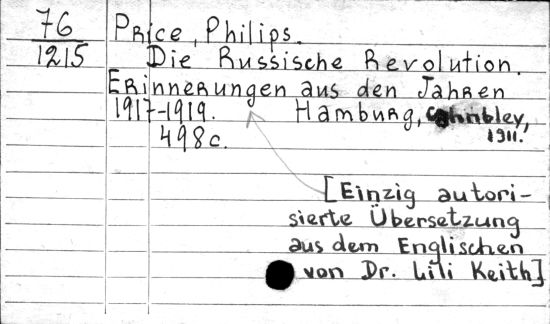 76
1215
Price, Philips.
Die Russische Revolution.
Erinnerungen aus den Jahren
1917-1919. Hamburg,
1911.
498c.
[Einzig autori-
sierte Übersetzung
aus dem Englischen
von Dr. Lili Keith]